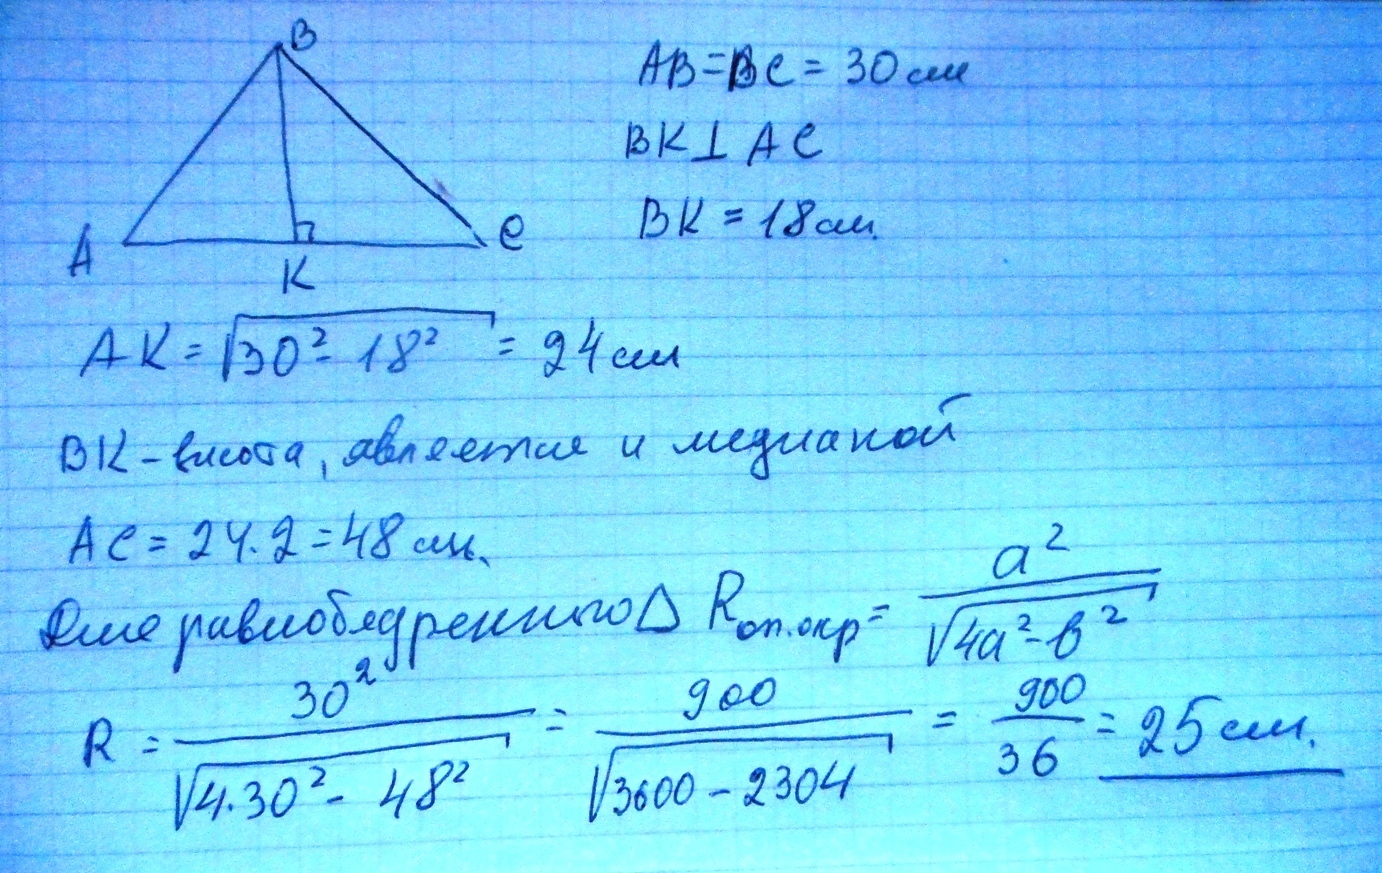 B
AB=BC=30см
BK⊥AC
BK=18см.
A
C
K
AK=√(30²-18²)=24см
BK-висота, является и медианой
AC=24·2=48см.
Для равнобедренного Δ Rоп.окр=a²/√(4a²-b²)
R=30²/√(4·30²-48²)=900/√(3600-2304)=900/36=25см.